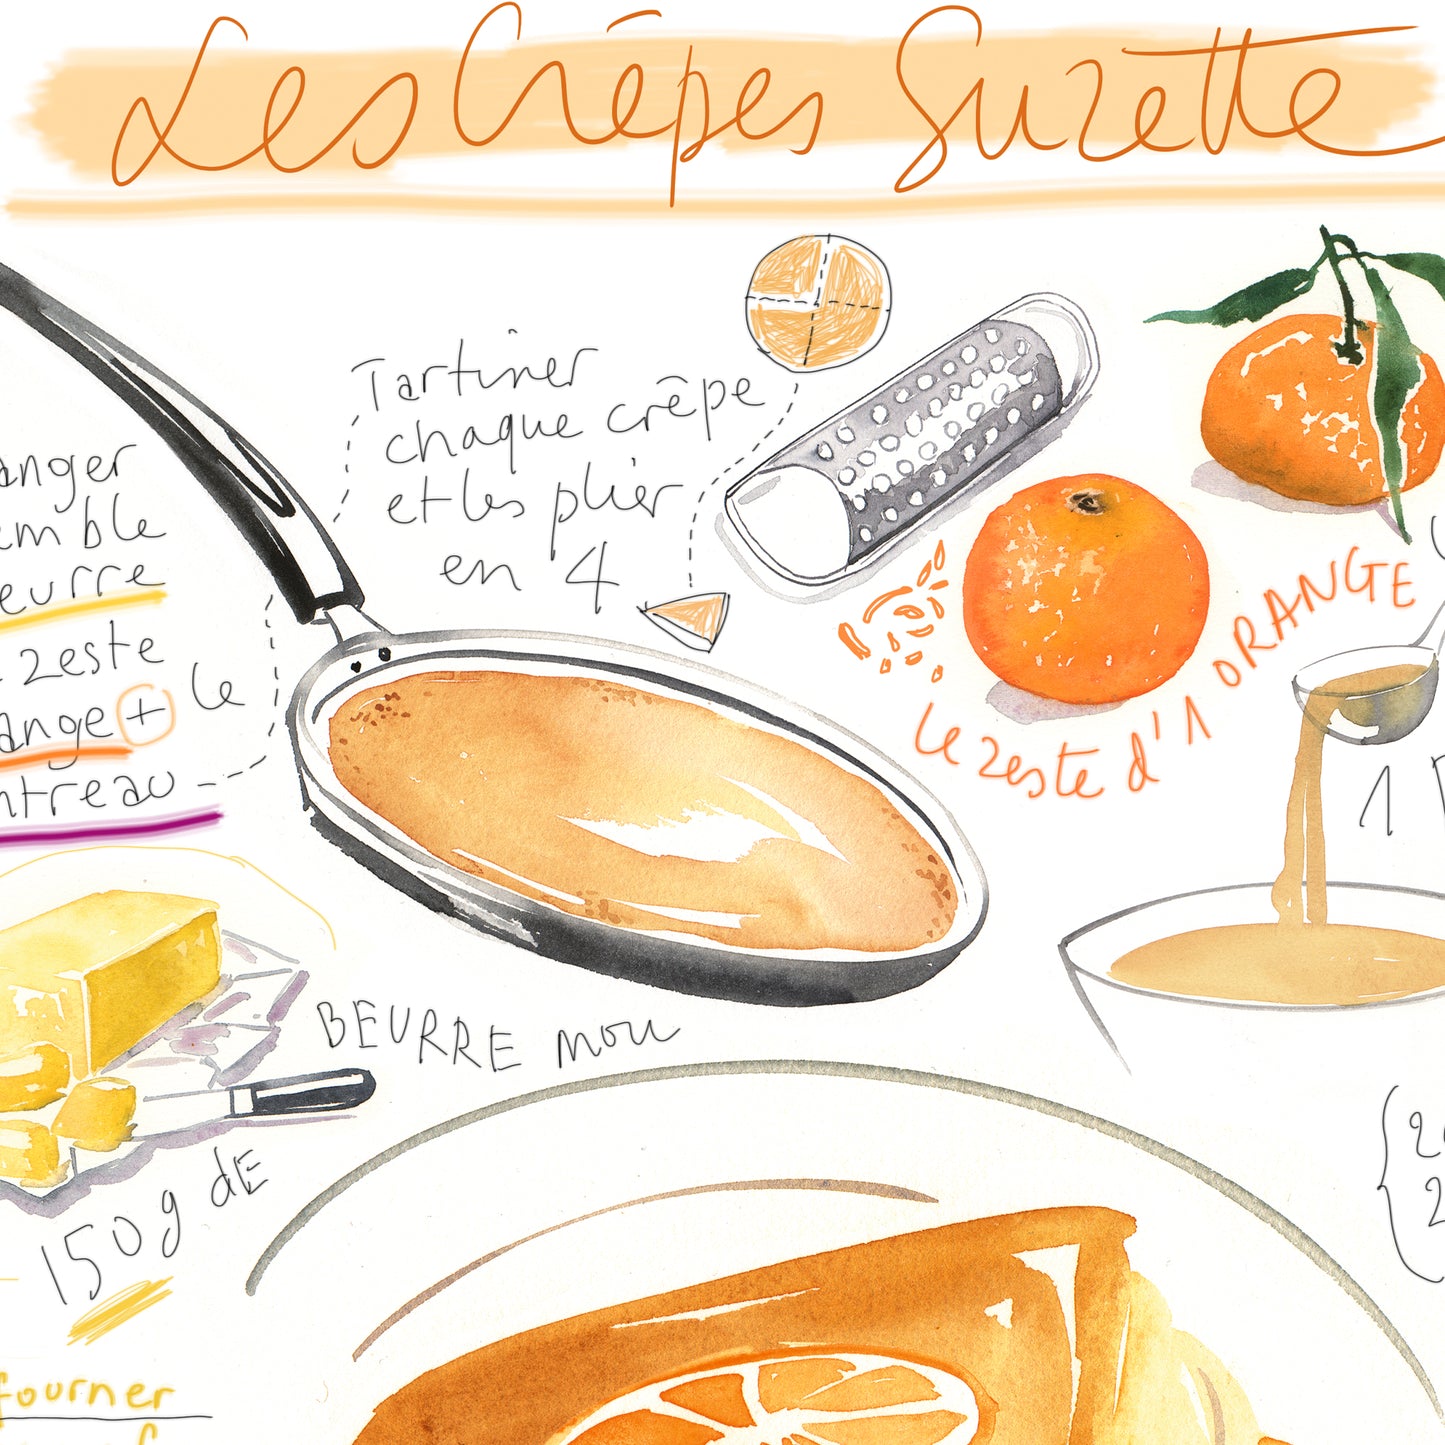 Les Crêpes Suzette
Tartiner
chaque crêpe
et les plier
en 4
anger
emble
eurre
zeste
ange + le
ntreau
le zeste d'1 ORANGE
1
BEURRE mou
150g dE
fourner
2